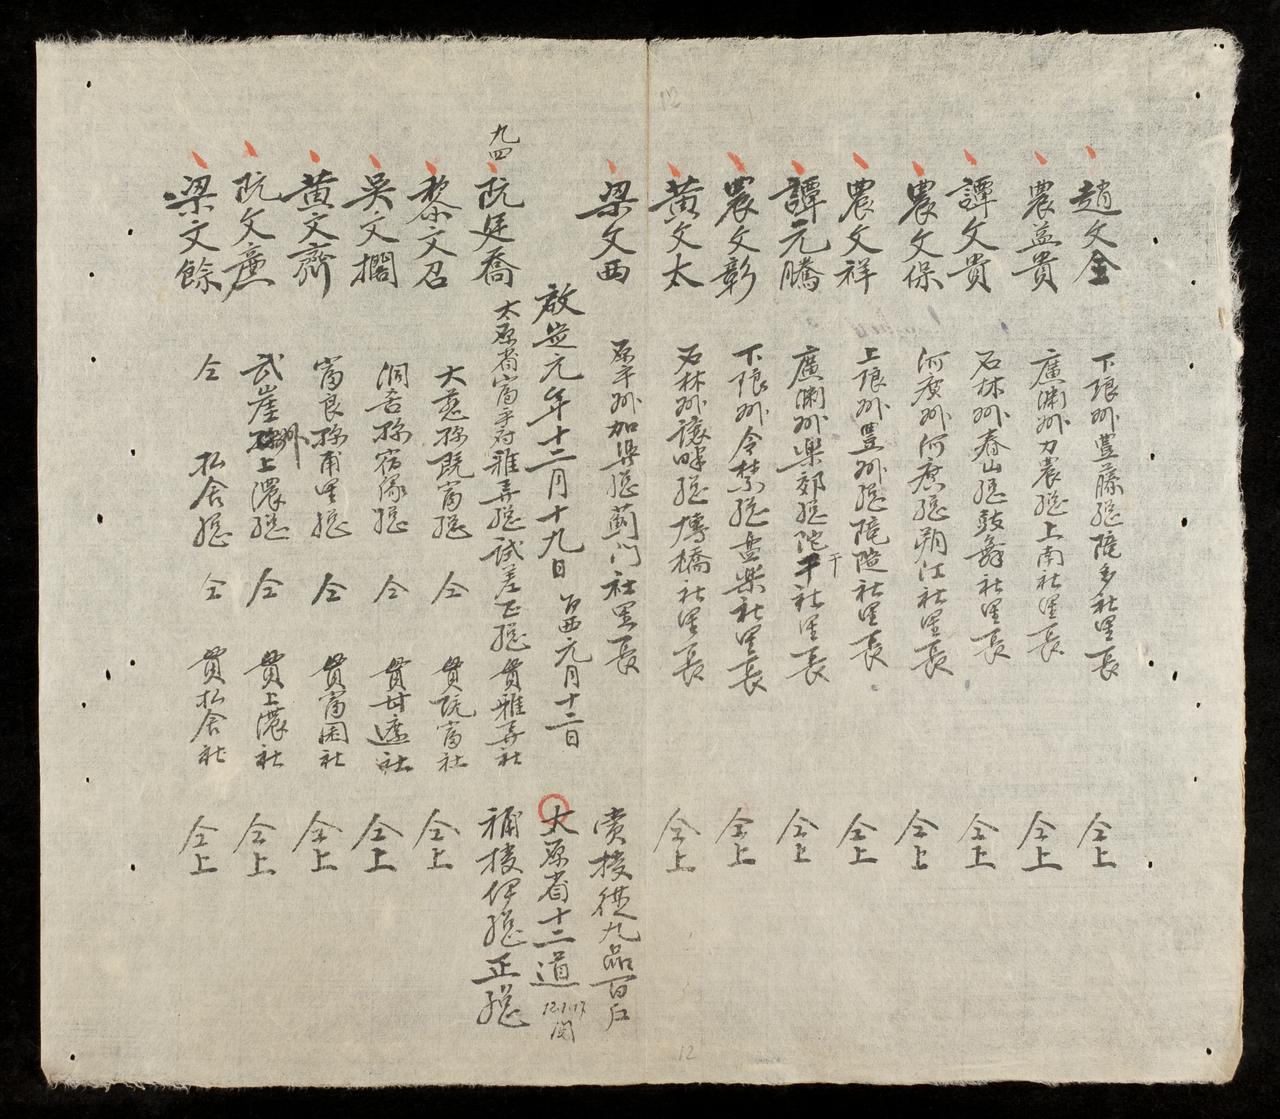 趙文金 下琅州豊藤總陪多社里長 仝上
農益貴 廣淵州力農總上南社里長 仝上
譚文貴 石林州春山總鼓舞社里長 仝上
農文保 河廣州河廣總朔江社里長 仝上
農文祥 上琅州豊州總陪陛社里長 仝上
譚元騰 廣淵州樂郊總陀干社里長 仝上
干
農文彰 下琅州令禁總盘樂社里長 仝上
黃文太 石林州讓畔總博橋社里長 仝上
梁文西 原平州加畀總薊門社里長 賞授從九品百户
啟定元年十二月十九日 西元月十二日 太原省十二道
12.1.17
九四
阮廷喬 太原省富平府雅弄總試差正總 貫雅弄社 補授伊總正總
黎文召 大慈 既富總 仝 貫既富社 仝上
吳文 洞喜 總 仝 貫甘 社 仝上
黃文齊 富良 總 仝 貫富 社 仝上
阮文 武崖州上濃總 仝 貫上濃社 仝上
梁文餘 仝 払舍總 仝 貫払舍社 仝上
12